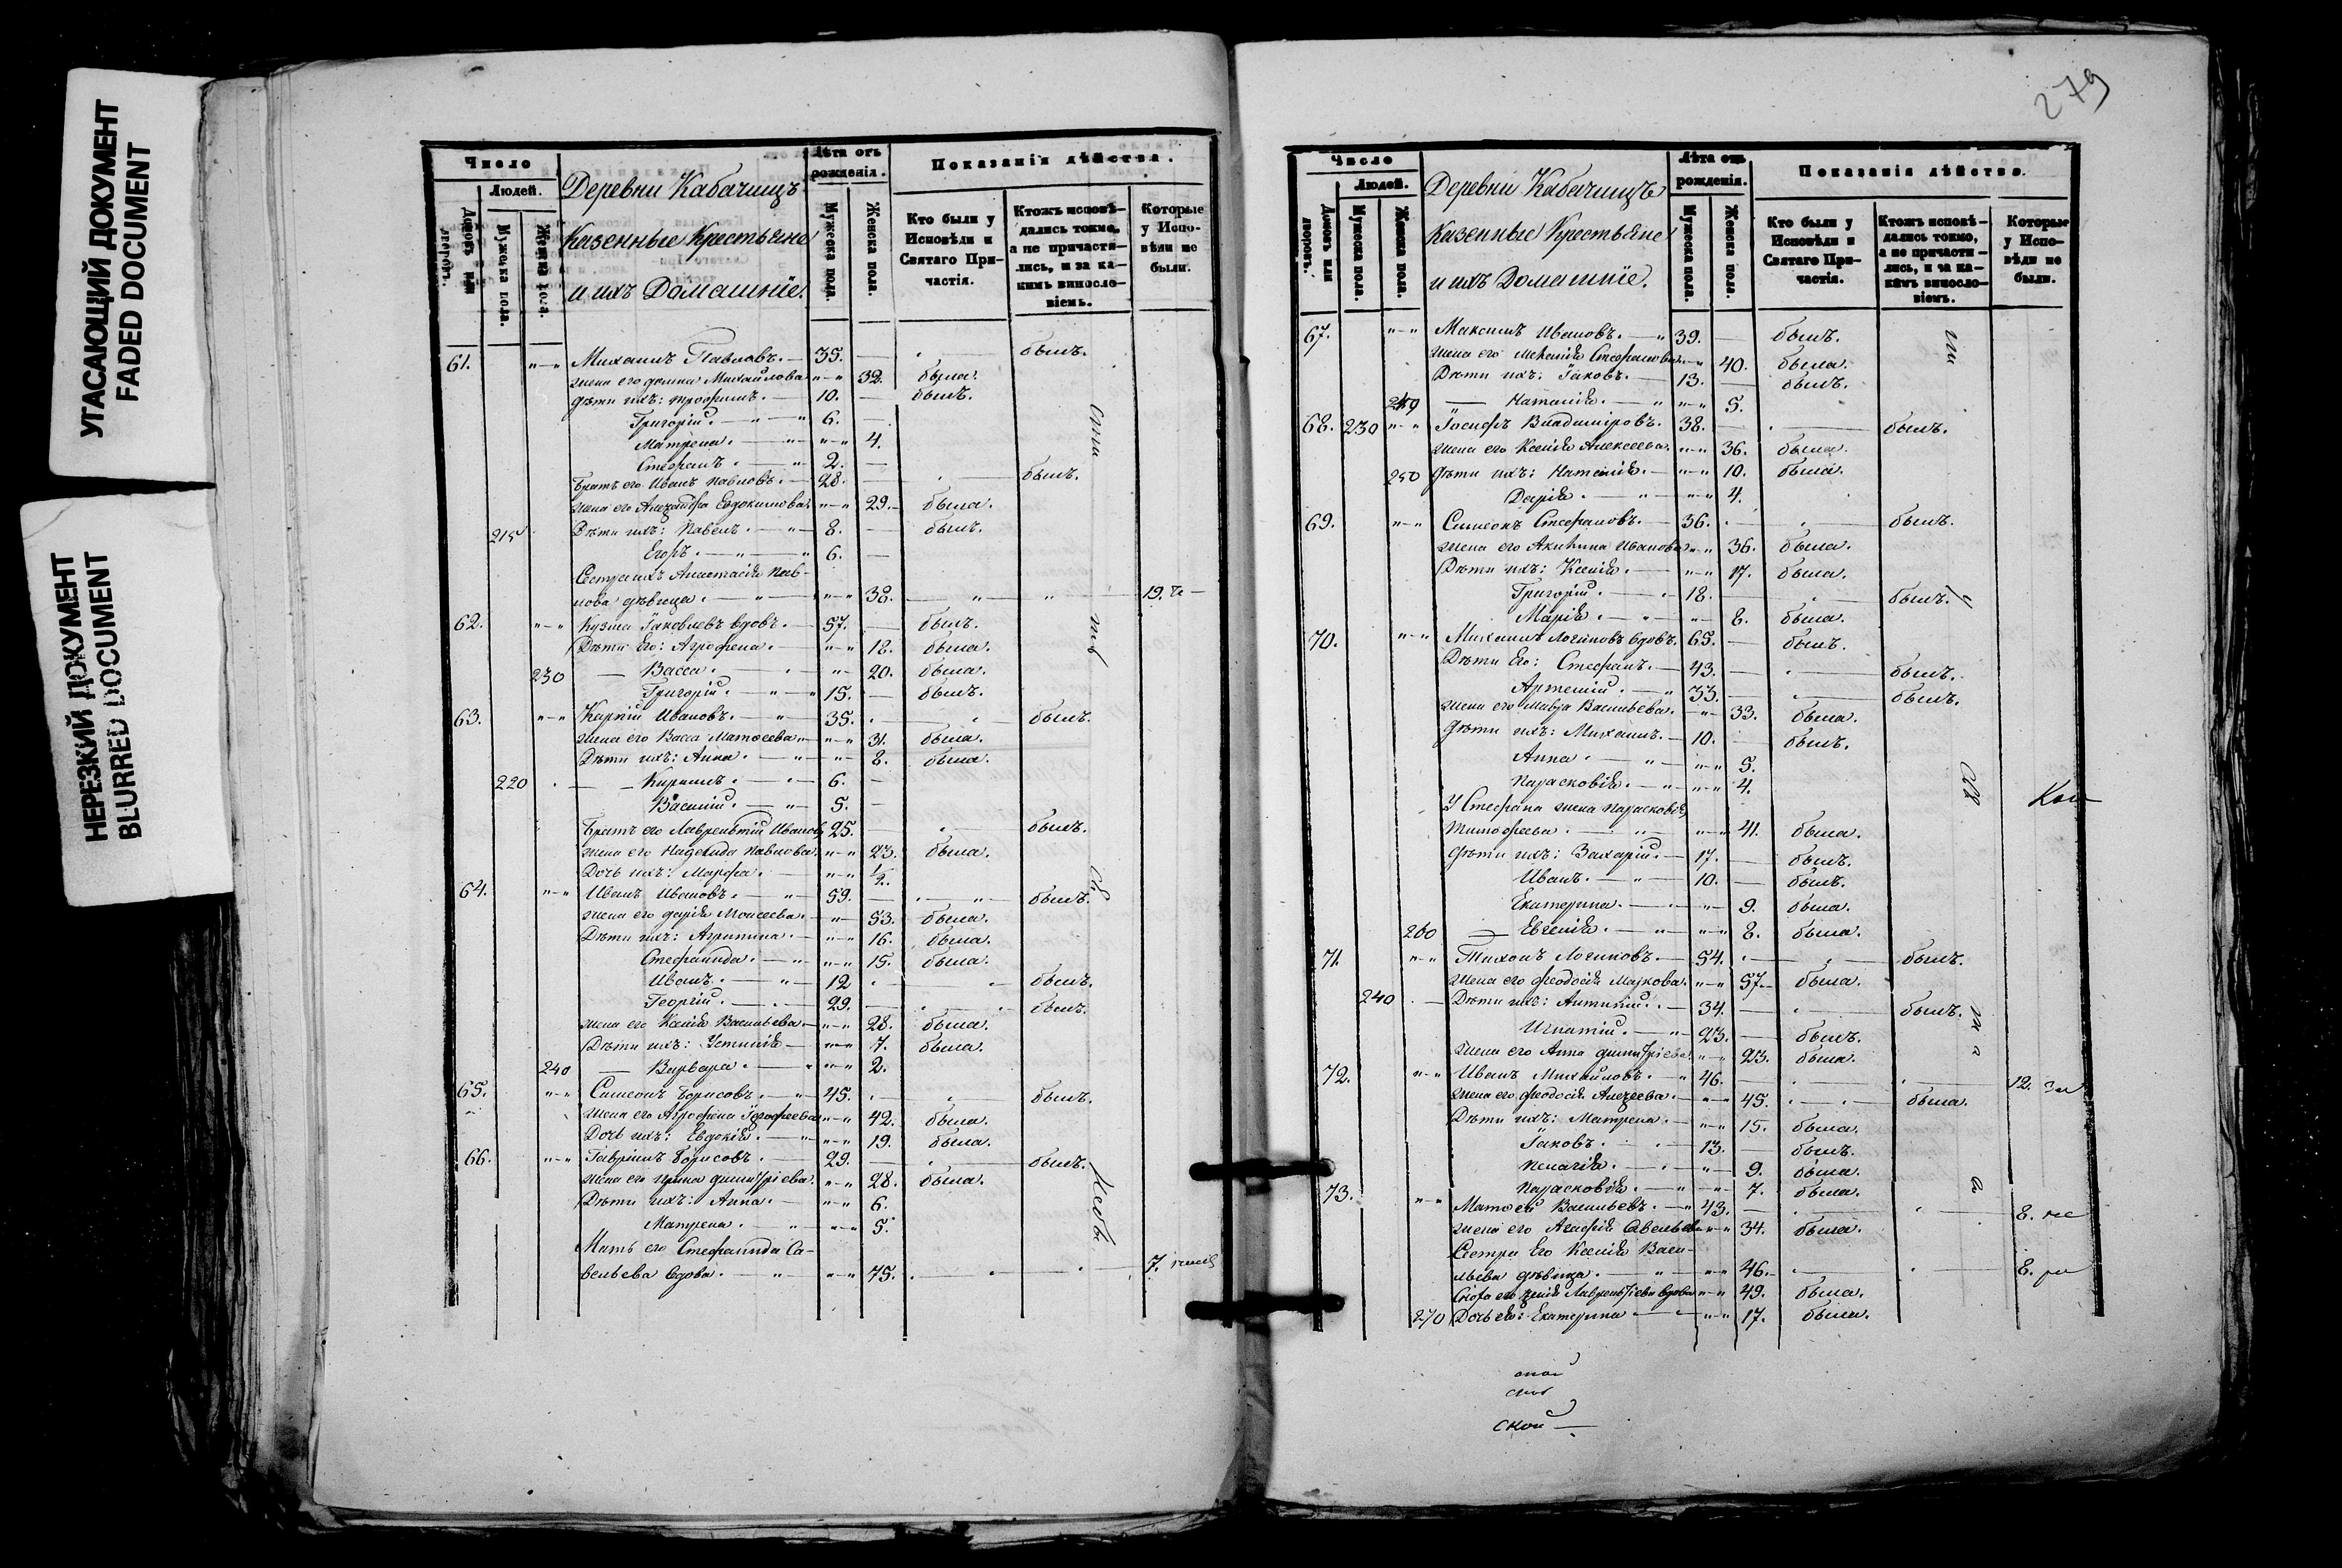 УГАСАЮЩИЙ ДОКУМЕНТ
FADED DOCUMENT
НЕРЕЗКИЙ ДОКУМЕНТ
BLURRED DOCUMENT
Число
Людей.
Домовъ или дворовъ.
Мужеска пола.
Женска пола.
Деревни Кабачищъ
Казенные Крестьяне
и ихъ Домашніе.
Лѣта отъ рожденія.
Мужеска пола.
Женска пола.
Показанія дѣйства.
Кто были у Исповѣди и Святаго Причастія.
Ктожъ исповѣдались токмо, а не причастились, и за какимъ винословіемъ.
Которые у Исповѣди не были.
61. "—" Михаилъ Павловъ. — 35. — был.
жена его Михайлова "—" 32. была.
дѣти ихъ: Трофимъ. — 10. — былъ.
Григорій. — " — " 6. —
Матрена. — "—" 4.
Стефанъ. — " 2. —
братъ его Иванъ Павловъ. — 28. — былъ.
жена его Евдокимова "—" 29. — была.
215 Дѣти ихъ: Павелъ. — " — 8. — былъ.
Егоръ. — " — " 6. —
Сестра ихъ Анастасія Пав-
лова дѣвица. — " — "—" 38. — " — " — 19.
62. "—" Кузма Іаковлевъ вдовъ. — 57. — былъ.
Дѣти Его: Агрофена. — "—" 18. была.
230 — Васса. "— 20. была.
Григорій. — " — " 15. — былъ.
63. "—" Карпъ Ивановъ. — " 35. был.
жена его Васса Матѳеева "—" 31. была.
Дѣти ихъ: Анна. — " — "— 8. была.
220 — Кирилъ. — " — 6. —
Василій. — " — 5. —
братъ его Лаврентій Ивановъ 25. — былъ.
жена его Надежда Павлова. "—" 23. была.
Дочь ихъ: Марфа. — "—" 1/2.
64. "—" Иванъ Ивановъ. — " — 59. — " — былъ.
жена его Дарія Моисеева. — "— 53. была.
Дѣти ихъ: Агрипина. — "—" 16. была.
Стефанида. — " — "—" 15. была.
Иванъ. — " — 12 былъ.
Георгій. — 29. — былъ.
жена его Ксенія Васильева. — "—" 28. была.
Дѣти ихъ: Устинія — "—" 7. была.
240 — Варвара. — "—" 2.
65. "—" Симеонъ Борисовъ. — " 45. былъ.
жена его Агрофена "—" 42. была.
Дочь ихъ: Евдокія. — "—" 19. была.
66. "—" Гавріилъ Борисовъ. — 29. — былъ.
жена его Ирина Димитріева. "—" 28. была.
Дѣти ихъ: Анна. — "—" 6.
Матрена. — " — "—" 5.
Мать его Стефанида Са-
вельева вдова. — " — "—" 75. 7.
279
Число
Людей.
Домовъ или дворовъ.
Мужеска пола.
Женска пола.
Деревни Кабачищъ
Казенные Крестьяне
и ихъ Домашніе.
Лѣта отъ рожденія.
Мужеска пола.
Женска пола.
Показанія дѣйства.
Кто были у Исповѣди и Святаго Причастія.
Ктожъ исповѣдались токмо, а не причастились, и за какимъ винословіемъ.
Которые у Исповѣди не были.
67. "—" Максимъ Ивановъ. — " 39. — былъ.
жена его Стефанова. "—" 40. была.
Дѣти ихъ: Іаковъ. — 13. — былъ.
— Наталія. — " "—" 5.
68. 230 "—" Іосифъ Владиміровъ. 38. — былъ.
жена его Ксенія Алексеева. "—" 36. была.
250 дѣти ихъ: Наталія. — "—" 10. была.
Дарія. — " — "—" 4.
69. "—" Симеонъ Стефановъ. — 36. былъ.
жена его Акилина Иванова "—" 36. была.
Дѣти ихъ: Ксенія. — "—" 17. была.
Григорій. — " 18. — былъ.
Марія. — " — "— 8. была.
70. "—" Михаилъ Логиновъ вдовъ. 65. — былъ.
Дѣти Его: Стефанъ. — 43. — былъ.
Артемій. — " 33. — былъ.
жена его Мавра Васильева. "—" 33. была.
дѣти ихъ: Михаилъ. — 10. — былъ.
Анна. — " — "—" 5.
Парасковія. — " — "—" 4.
У Стефана жена Парасковія
Тимофеева. — " — "—" 41. была.
дѣти ихъ: Захарій. — 17. — былъ.
Иванъ. — " — 10. — былъ.
Екатерина. — "—" 9. была.
260 — Евгенія. — " — "—" 8. была.
71. "—" Тихонъ Логиновъ. — 54. былъ.
жена его Феодосія Маркова. "—" 57. — была.
240 — Дѣти ихъ: Антипій. — 34. — былъ.
Игнатій. — " 23. — былъ.
жена его Анна Димитріева "—" 23. была.
72. "—" Иванъ Михайловъ. — " 46. — 12.
жена его Феодосія Андреева. — "—" 45. — была.
Дѣти ихъ: Матрена. "—" 15. была.
Іаковъ. — 13. — былъ.
Пелагія. — "— 9. была.
Парасковія. — " "—" 7. была.
73. "—" Матѳей Васильевъ. — " 43. — 8. не
жена его Агафія Савельева "—" 34. была.
Сестра Его Ксенія Васи-
льева дѣвица. — " — "—" 46. — 8.
вдова "—" 49. была.
270 Дочь ея: Екатерина — "—" 17. была.
ской —